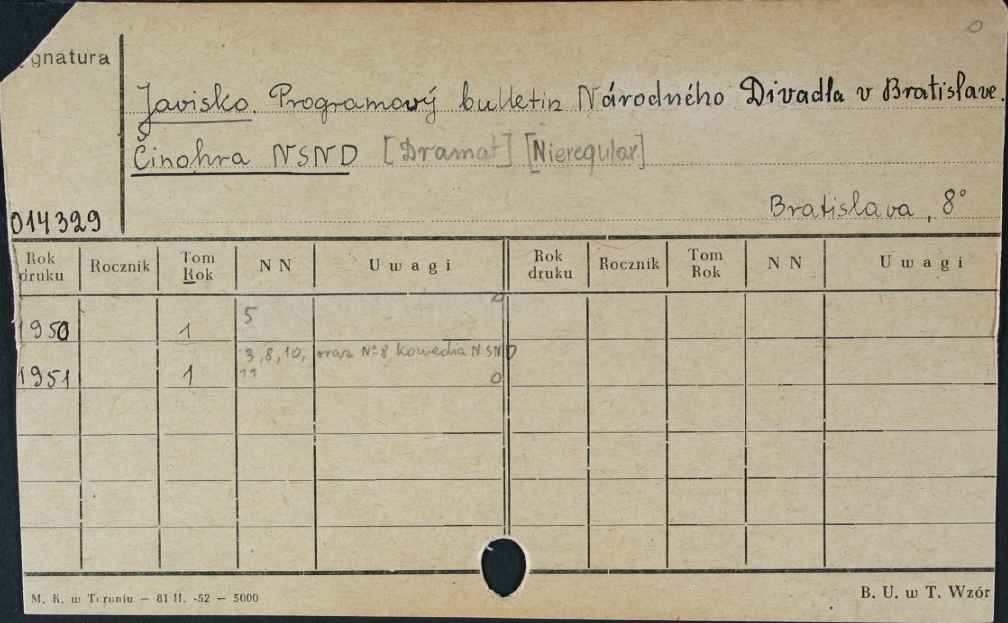 gnatura
0
Javisko. Programový bulletin Národného Divadla v Bratislave.
Činohra NSND [Dramat] [Nieregular.]
014329
Bratislava, 8°
Rok druku Rocznik Tom Rok N N Uwagi Rok druku Rocznik Tom Rok N N Uwagi
0
1950 1 5
3, 8, 10, oraz № 8 komedia NSND
1951 1 11 0
M. K. w Toruniu — 81 II. -52 — 5000
B. U. w T. Wzór